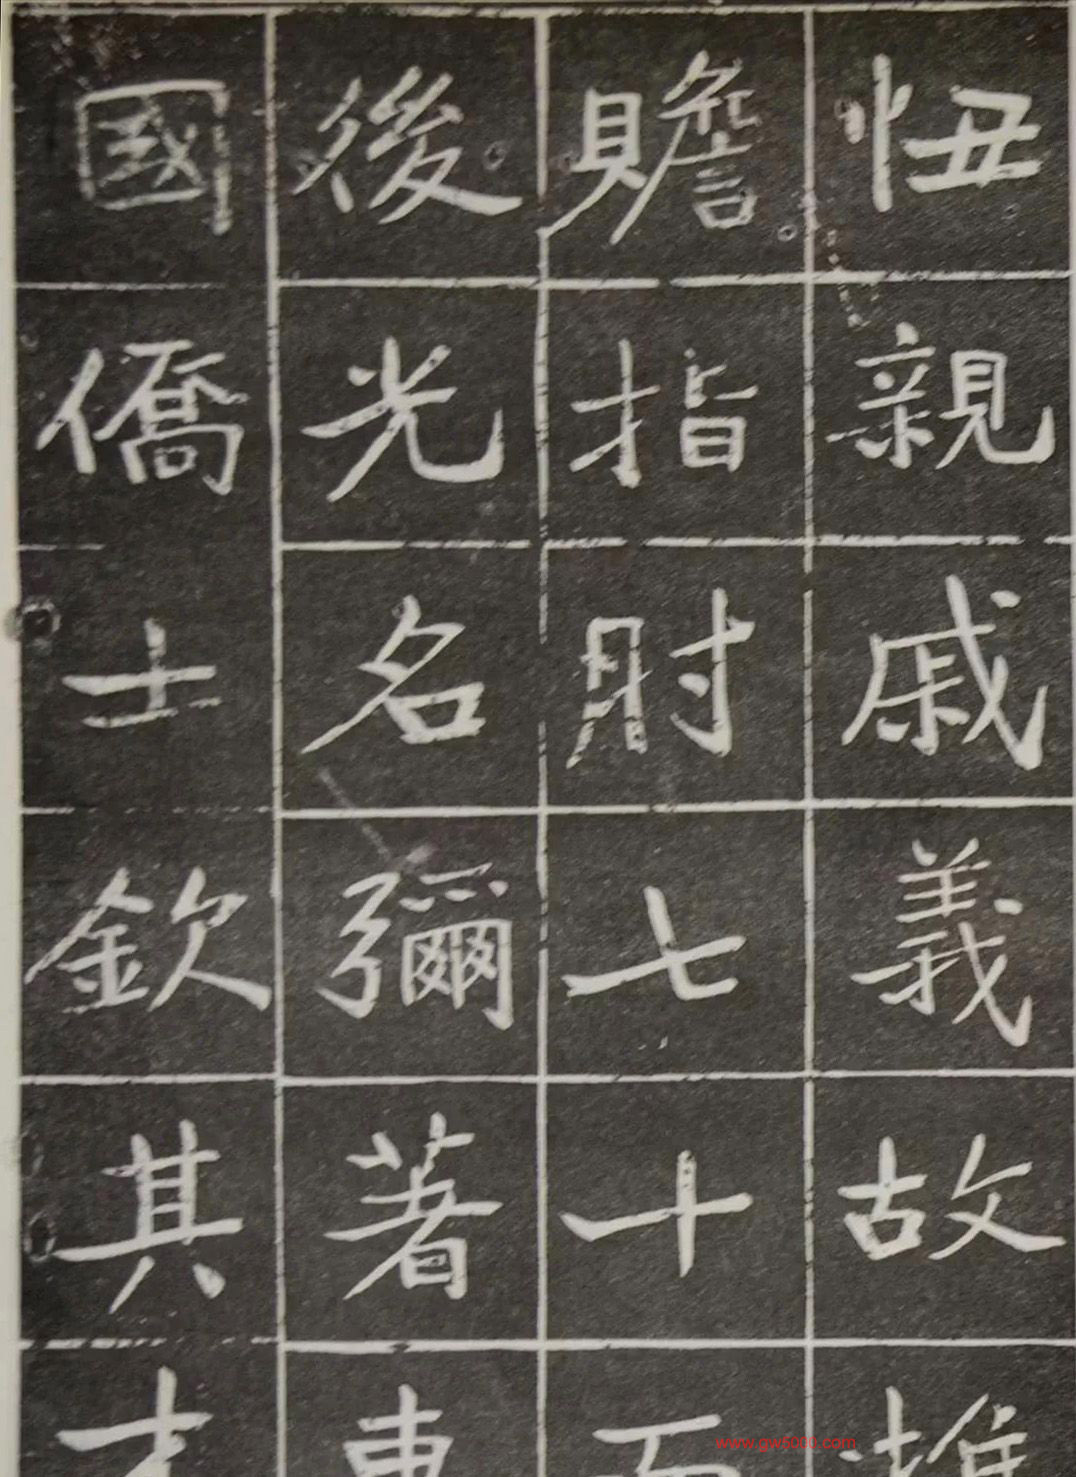 忸親戚義故
贍指肘七十
後光名彌著
國僑士欽其才
www.gw5000.com